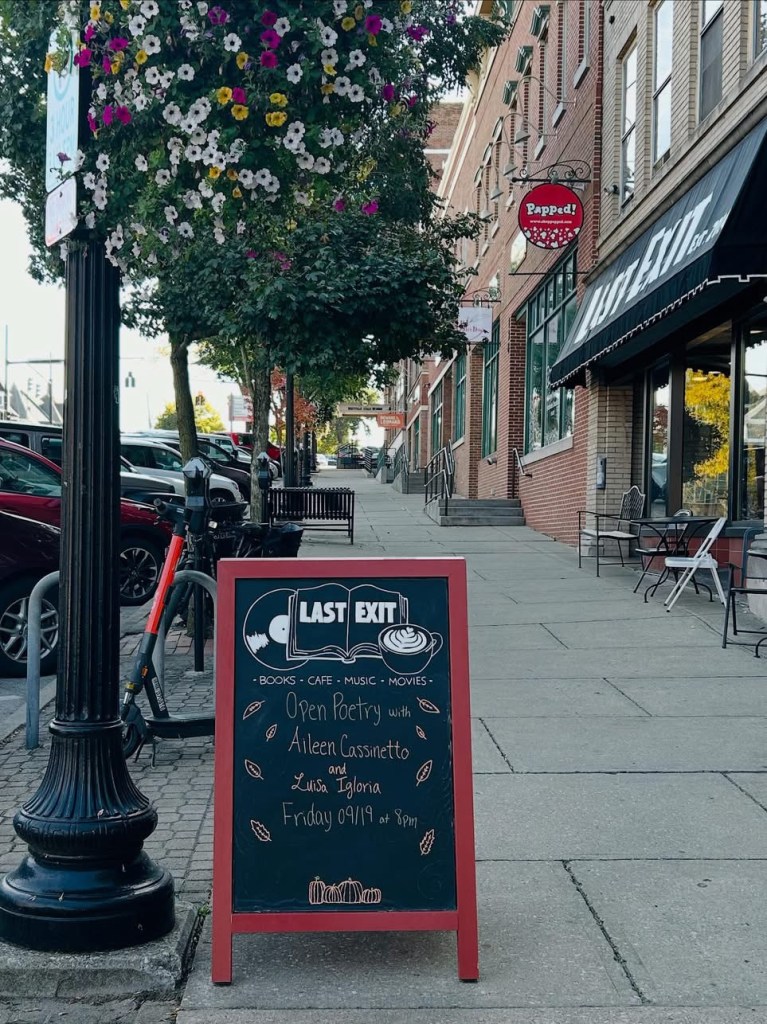 Papped!
LAST EXIT
LAST EXIT
- BOOKS - CAFE - MUSIC - MOVIES -
Open Poetry with
Aileen Cassinetto
and
Luisa Igloria
Friday 09/19 at 8pm